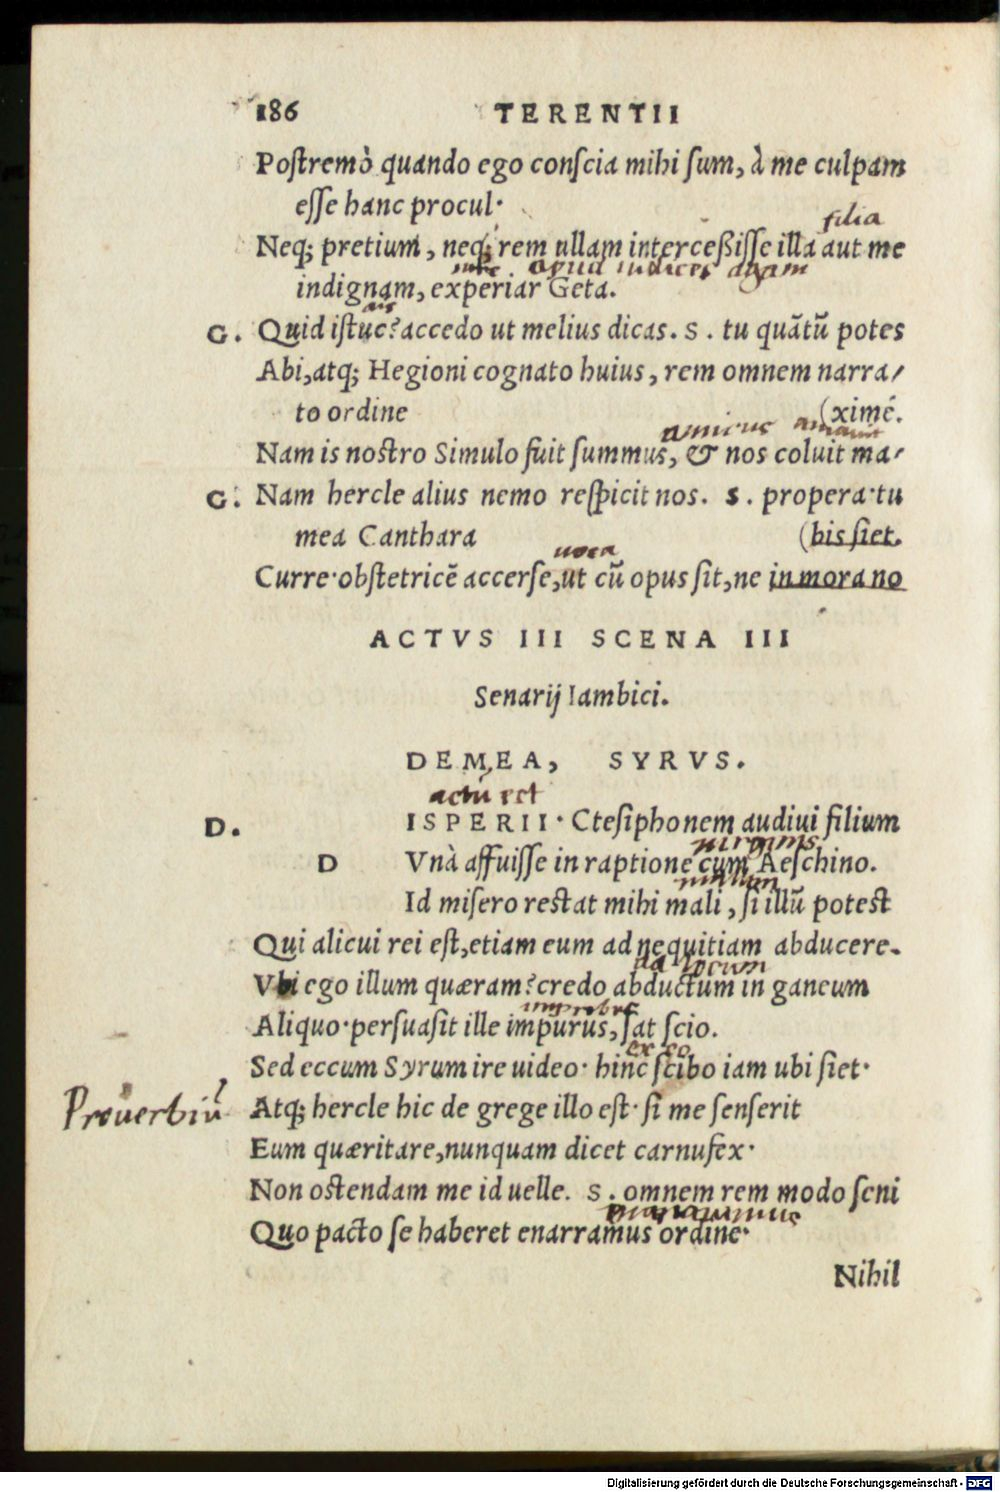 186 TERENTII
Postremò quando ego conscia mihi sum, à me culpam
esse hanc procul·
filia
Neq; pretium, neq; rem ullam interceßisse illa aut me
iure apud iudices agam
indignam, experiar Geta.
ais
G. Quid istuc? accedo ut melius dicas. S. tu quãtũ potes
Abi, atq; Hegioni cognato huius, rem omnem narra/
to ordine (ximé.
amicus amauit
Nam is nostro Simulo fuit summus, & nos coluit ma/
G. Nam hercle alius nemo respicit nos. S. propera·tu
mea Canthara (bis siet.
uoca
Curre·obstetricẽ accerse, ut cũ opus sit, ne in mora no
ACTVS III SCENA III
Senarij Iambici.
DEMEA, SYRVS.
actũ est
D. ISPERII· Ctesiphonem audiui filium
D Vnà affuisse in raptione cum Aeschino.
Id misero restat mihi mali, si illũ potest
Qui alicui rei est, etiam eum ad nequitiam abducere.
ad locum
Vbi ego illum quæram? credo abductum in ganeum
Aliquo·persuasit ille impurus, sat scio.
ex eo
Sed eccum Syrum ire uideo· hinc scibo iam ubi siet·
Prouerbiũ Atq; hercle hic de grege illo est· si me senserit
Eum quæritare, nunquam dicet carnufex·
Non ostendam me id uelle. S. omnem rem modo seni
Quo pacto se haberet enarramus ordine·
Nihil
Digitalisierung gefördert durch die Deutsche Forschungsgemeinschaft - DFG